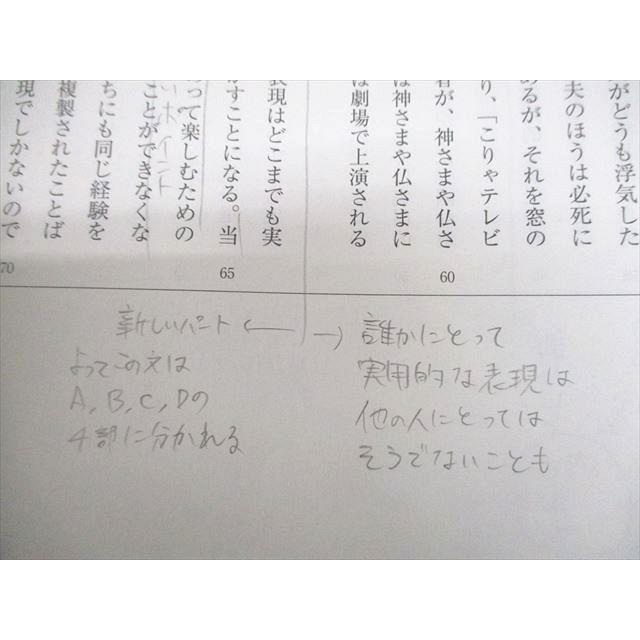 がどうも浮気した
夫のほうは必死に
あるが、それを窓の
り、「こりゃテレビ
者が、神さまや仏さ
は神さまや仏さまに
は劇場で上演される
60
表現はどこまでも実
かすことになる。当
65
って楽しむための
ことができなくな
ちにも同じ経験を
複製されたことば
現でしかないので
70
ポイント
新しいパート ← → 誰かにとって
実用的な表現は
他の人にとっては
そうでないことも
よってこの文は
A, B, C, Dの
4部に分かれる